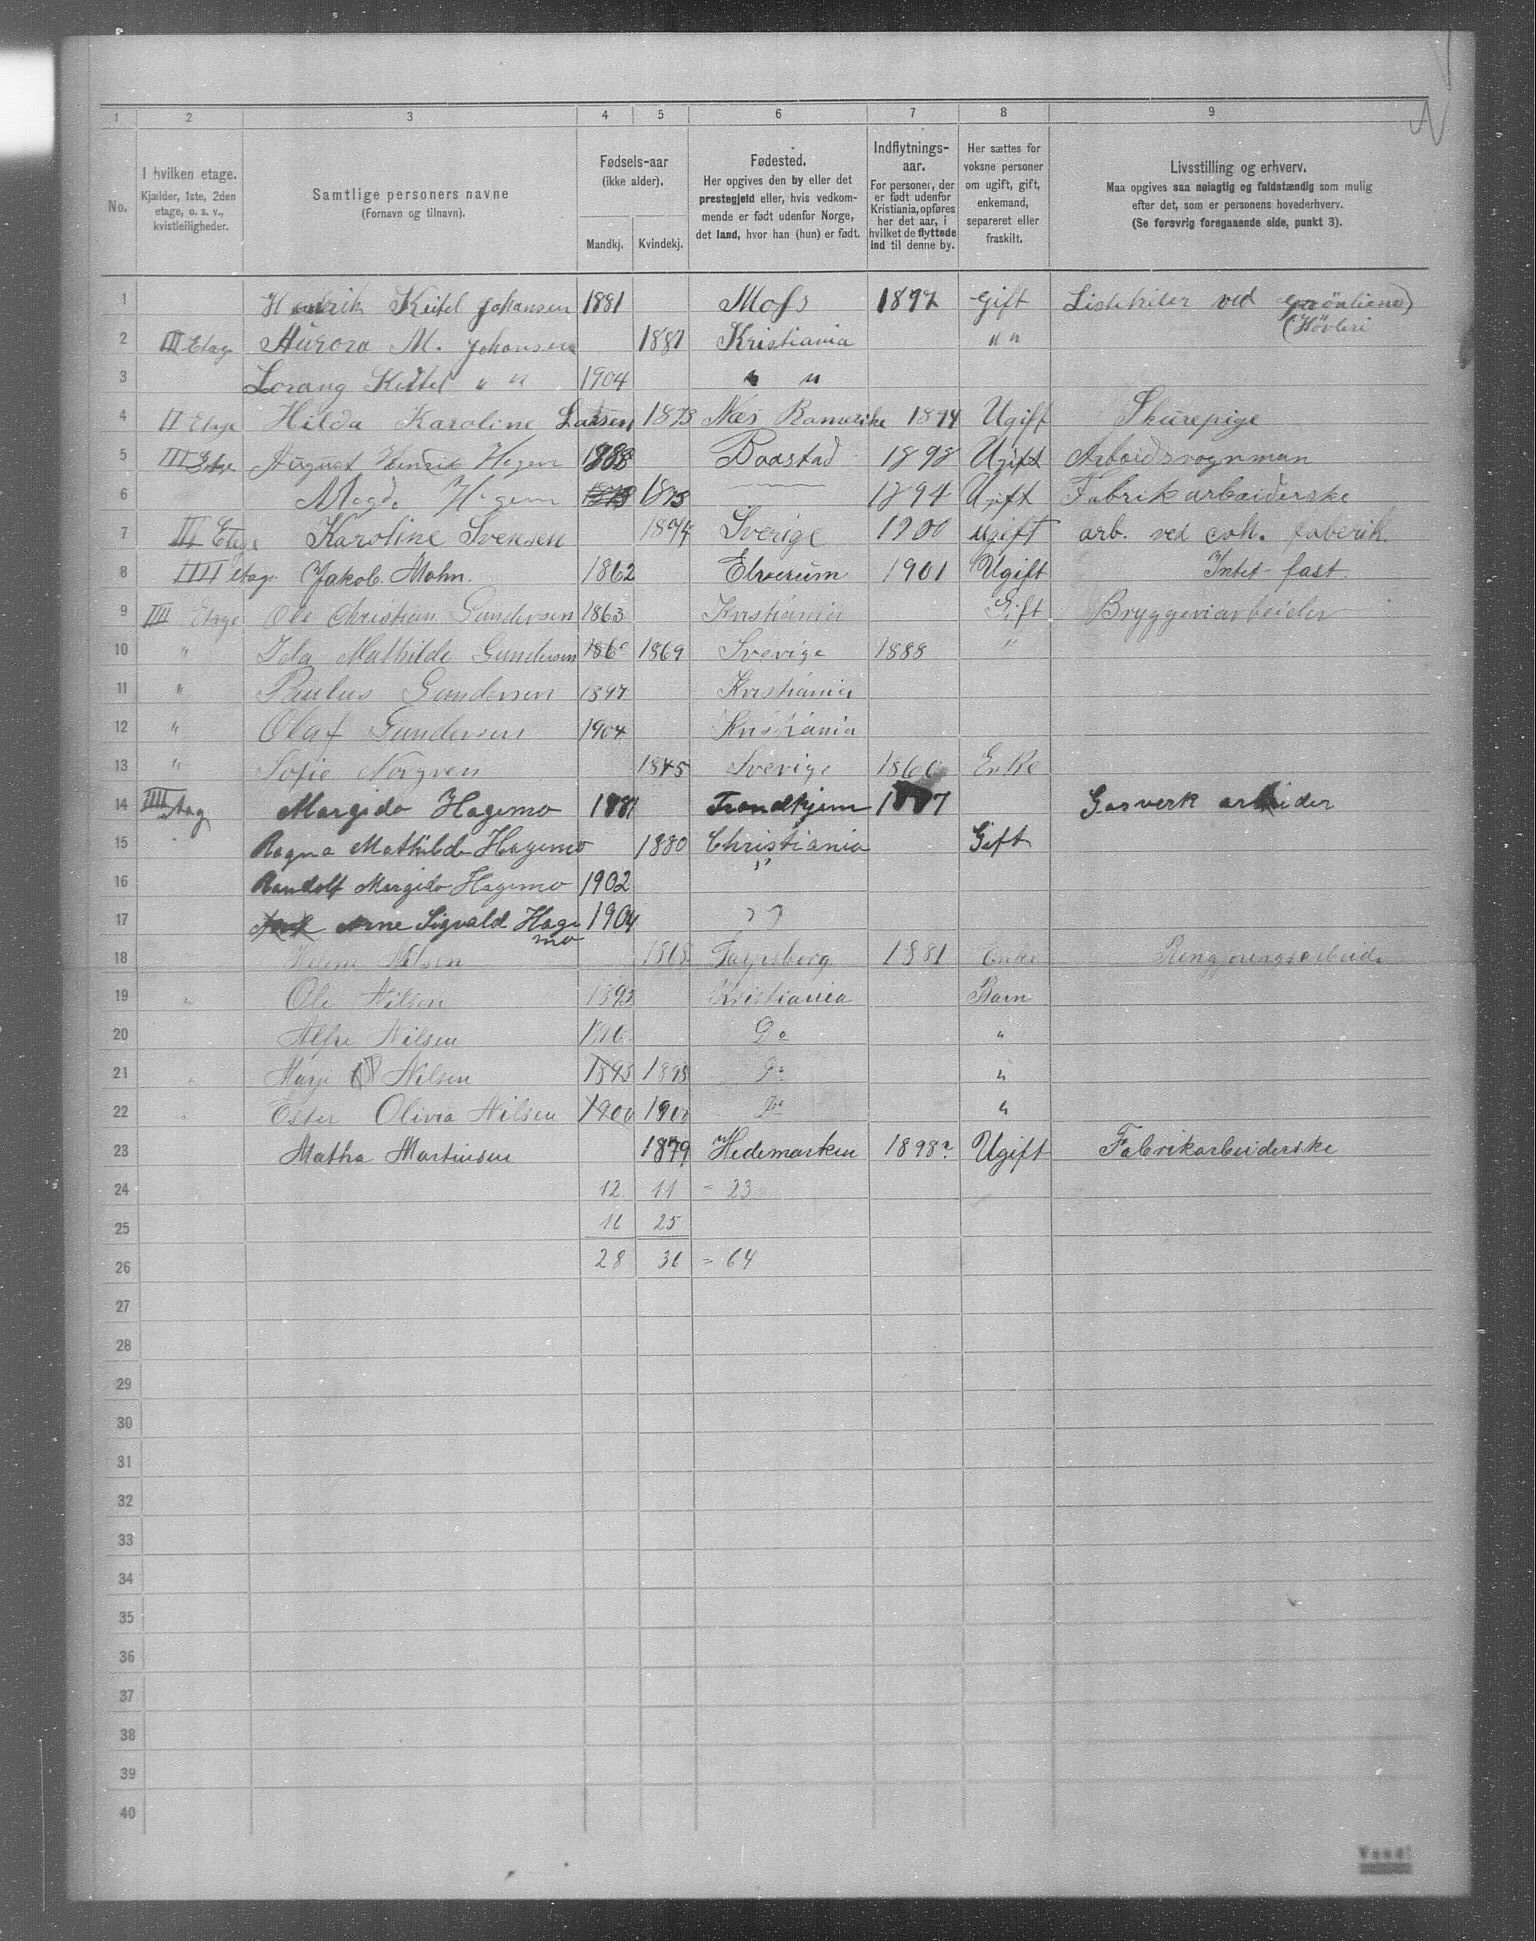 1 2 3 4 5 6 7 8 9
No.
I hvilken etage.
Kjælder, 1ste, 2den
etage, o. s. v.,
kvistleiligheder.
Samtlige personers navne
(Fornavn og tilnavn).
Fødsels-aar
(ikke alder).
Mandkj. Kvindekj.
Fødested.
Her opgives den by eller det
prestegjeld eller, hvis vedkom-
mende er født udenfor Norge,
det land, hvor han (hun) er født.
Indflytnings-
aar.
For personer, der
er født udenfor
Kristiania, opføres
her det aar, i
hvilket de flyttede
ind til denne by.
Her sættes for
voksne personer
om ugift, gift,
enkemand,
separeret eller
fraskilt.
Livsstilling og erhverv.
Maa opgives saa nøiagtig og fuldstændig som mulig
efter det, som er personens hovederhverv.
(Se forøvrig foregaaende side, punkt 3).
1 Henrik Keitel Johansen 1881 Moss 1897 Gift ved
(Høvleri
2 III Etag Aurora M. Johansen 1881 Kristiania " "
3 Lorang Keitel " " 1904 " "
4 II Etage Hilda Karoline Larsen 1873 Næs Romerike 1894 Ugift Skurepige
5 III Etage August Henrik Hagen 1888 Baastad 1898 Ugift Arbeidsvognman
6 Magda Hagen 1873 1873 1894 Ugift Fabrikarbeiderske
7 III Etage Karoline Svensen 1874 Sverige 1900 ugift arb. ved faberik.
8 IIII etag. Jakob Mohn. 1862 Elverum 1901 Ugift Intet fast.
9 IIII Etage Ole Christian Gundersen 1863 Kristiania Gift Bryggeriarbeider
10 " Ida Mathilde Gundersen 1869 Sverige 1888 "
11 " Paulus Gundersen 1897 Kristiania
12 " Olaf Gundersen 1904 Kristiania
13 " Sofie Norgren 1845 Sverige 1866 Enke
14 IIII Etag Margido Hagemo 1881 Trondhjem 1887 Gasverk arbeider
15 Ragna Mathilde Hagemo 1880 Christiania Gift
16 Randolf Margido Hagemo 1902 "
17 Arne Sigvald Hage 1904 " "
mo
18 Nilsen 1868 1881 Enke Rengjøringsarbeide
19 " Ole Nilsen 1893 Kristiania Barn
20 Alfre Nilsen Do "
21 " Nilsen 1898 1898 Do "
22 " Ester Olivia Nilsen 1900 1900 Do "
23 Matha Martinsen 1879 Hedemarken 1898 Ugift Fabrikarbeiderske
24 12 11 = 23
25 16 25
26 28 36 = 64
27
28
29
30
31
32
33
34
35
36
37
38
39
40